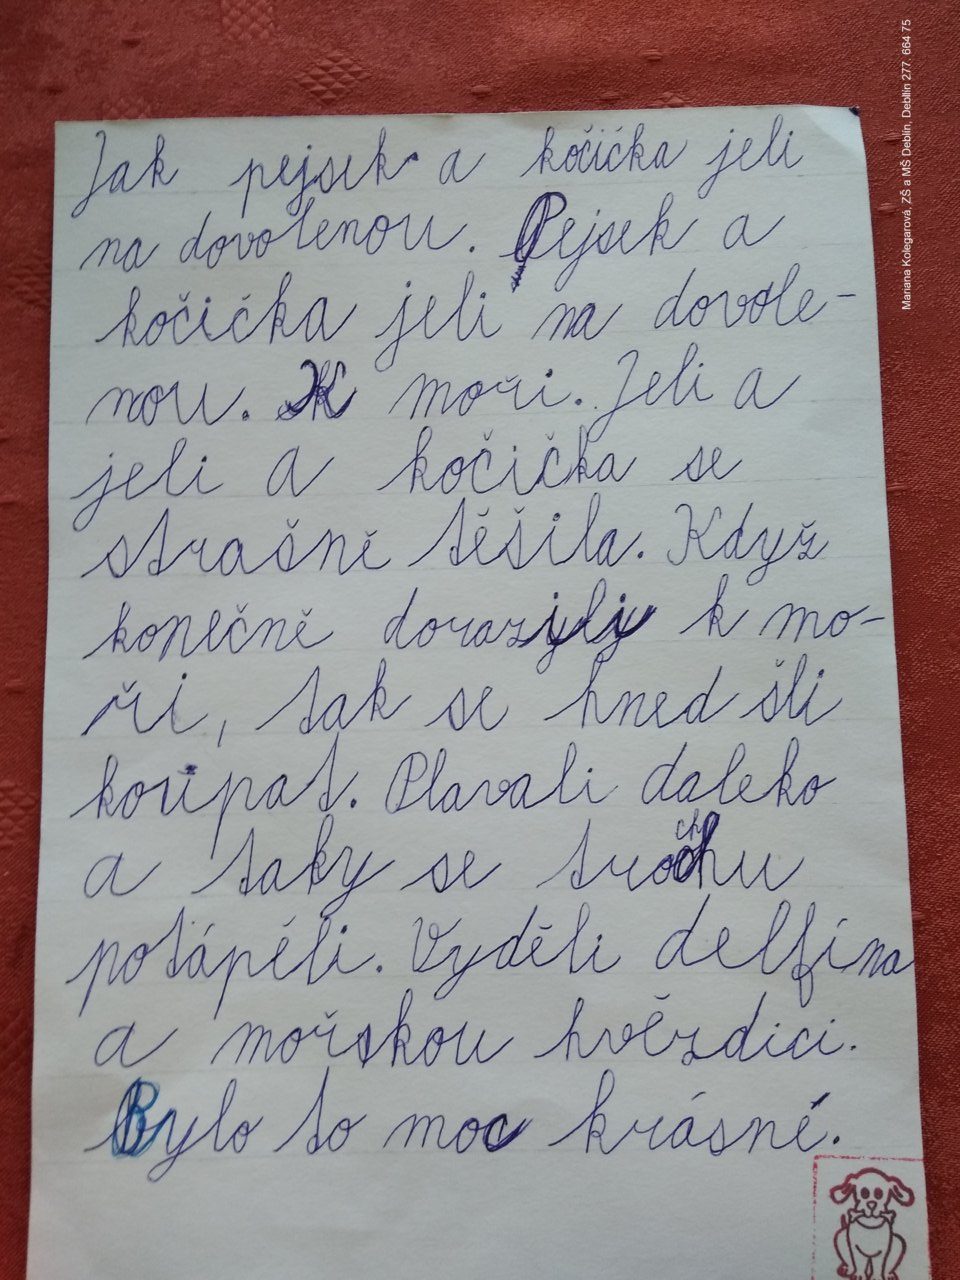 Jak pejsek a kočička jeli
na dovolenou. Pejsek a
kočička jeli na dovole-
nou. K moři. Jeli a
jeli a kočička se
strašně těšila. Když
konečně dorazyly k mo-
ři, tak se hned šli
koupat. Plavali daleko
a taky se trochu
potápěli. Vyděli delfína
a mořskou hvězdici.
Bylo to moc krásné.
Mariana Kolegarová, ZŠ a MŠ Deblín, Debllín 277, 664 75